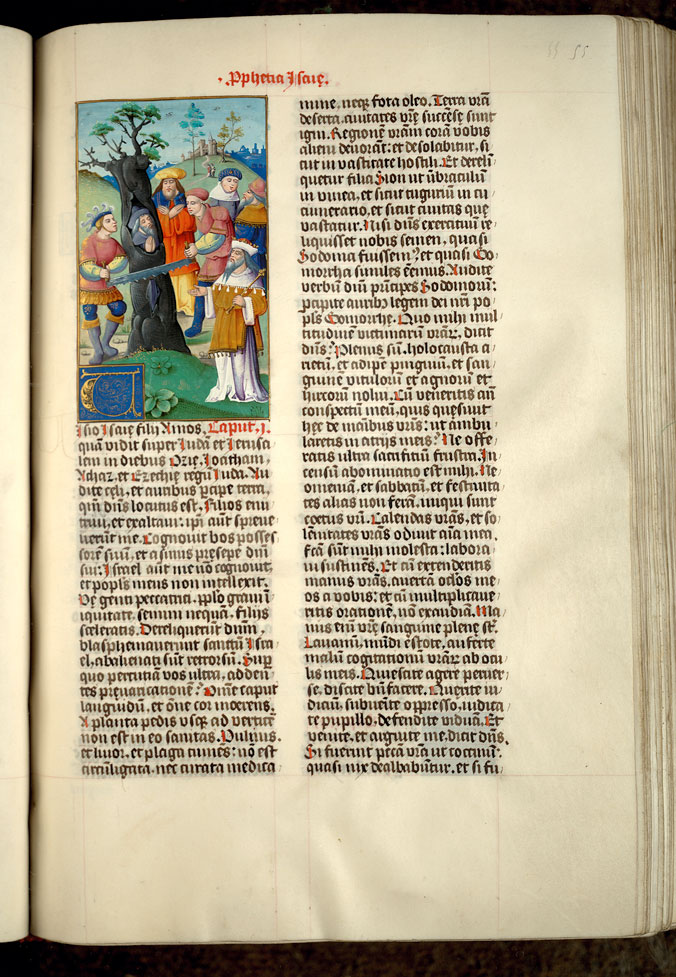 55 55
·Pphetia Isaię.
V
Isio Isaię filij Amos. Caput .j.
quam vidit super Iudā et Ierusa
lem in diebus Ozię, Ioatham,
Achaz, et Ezechię regū Iuda. Au
dite cęli, et auribus pcipe terra,
qm̄ dn̄s locutus est. Filios enu
triui, et exaltaui: ipi aūt spreue
uerūnt me. Cognouit bos posses
sorem suū, et asinus pręsepe dm̄
sui: Israel aūt me nō cognouit,
et popls meus non intellexit.
Vę genti peccatrici, pplo graui ī
iquitate, semini nequā, filijs
sceleratis. Dereliquerūt dnūm,
blasphemauerūt sanctū Isra
el, abalienati sūt retrorsū. Supr
quo percutiā vos vltra, adden
tes pręuaricationē? Omne caput
languidū, et ōne cor moerens.
A planta pedis vsq ad verticē
non est in eo sanitas. Vulnus,
et liuor, et plaga tumēs: nō est
circūligata, nec curata medica
mine, neq fota oleo. Terra vrā
deserta, ciuitates vrę succēsę sunt
igni. Regionem vrām corā vobis
alieni deuorāt: et desolabitur, si
cut in vastitate hostili. Et dereli
quetur filia Sion ut ūbraculū
in vinea, et sicut tuguriū in cu
cumerario, et sicut ciuitas quę
vastatur. Nisi dn̄s exercituū re
liquisset nobis semen, quasi
Sodoma fuissem? et quasi Go
morrha similes eēmus. Audite
verbū dnī prīcipes Sodomorū:
pcipite auribs legem dei nrī po
pls Gomorrhę. Quo mihi mul
titudinē victimarū vrārꝝ, dicit
dn̄s? Plenus sū. holocausta a
rietū, et adipē pinguiū, et san
guinē vitulorū et agnorū et
hircorū nolui. Cū veneritis an̄
conspectū meū, quis quęsiuit
hęc de māibus vrīs: ut ambu
laretis in atrijs meis? Ne offe
ratis ultra sacrifitiū frustra. In
censū abominatio est mihi. Ne
omeniā, et sabbatū, et festiuita
tes alias non ferā, iniqui sunt
coetus vrī. Calendas vrās, et so
lēnitates vrās odiuit aīa mea.
fcā sūt mihi molesta: labora
ui sustinēs. Et cū extenderitis
manus vrās, auertā oclos me
os a vobis: et cū multiplicaue
ritis orationē, non exaudiā. Ma
nus enī vrę sanguine plenę st̄.
Lauamī, mūdi estote, auferte
malum cogitationū vrārꝝ ab ocu
lis meis. Quiescite agere peruer
se, discite bn̄ facere. Quęrite iu
diciū, subuēite oppresso, iudica
te pupillo, defendite viduā. Et
venite, et arguite me, dicit dn̄s.
Si fuerint pcc̄a vrā ut coccinū:
quasi nix dealbabūtur, et si fu